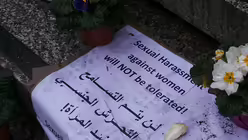 Sexual Harassment
against women
will NOT be
tolerated!
لن يتم التسامح
التحرش الجنسي
ضد المرأة!